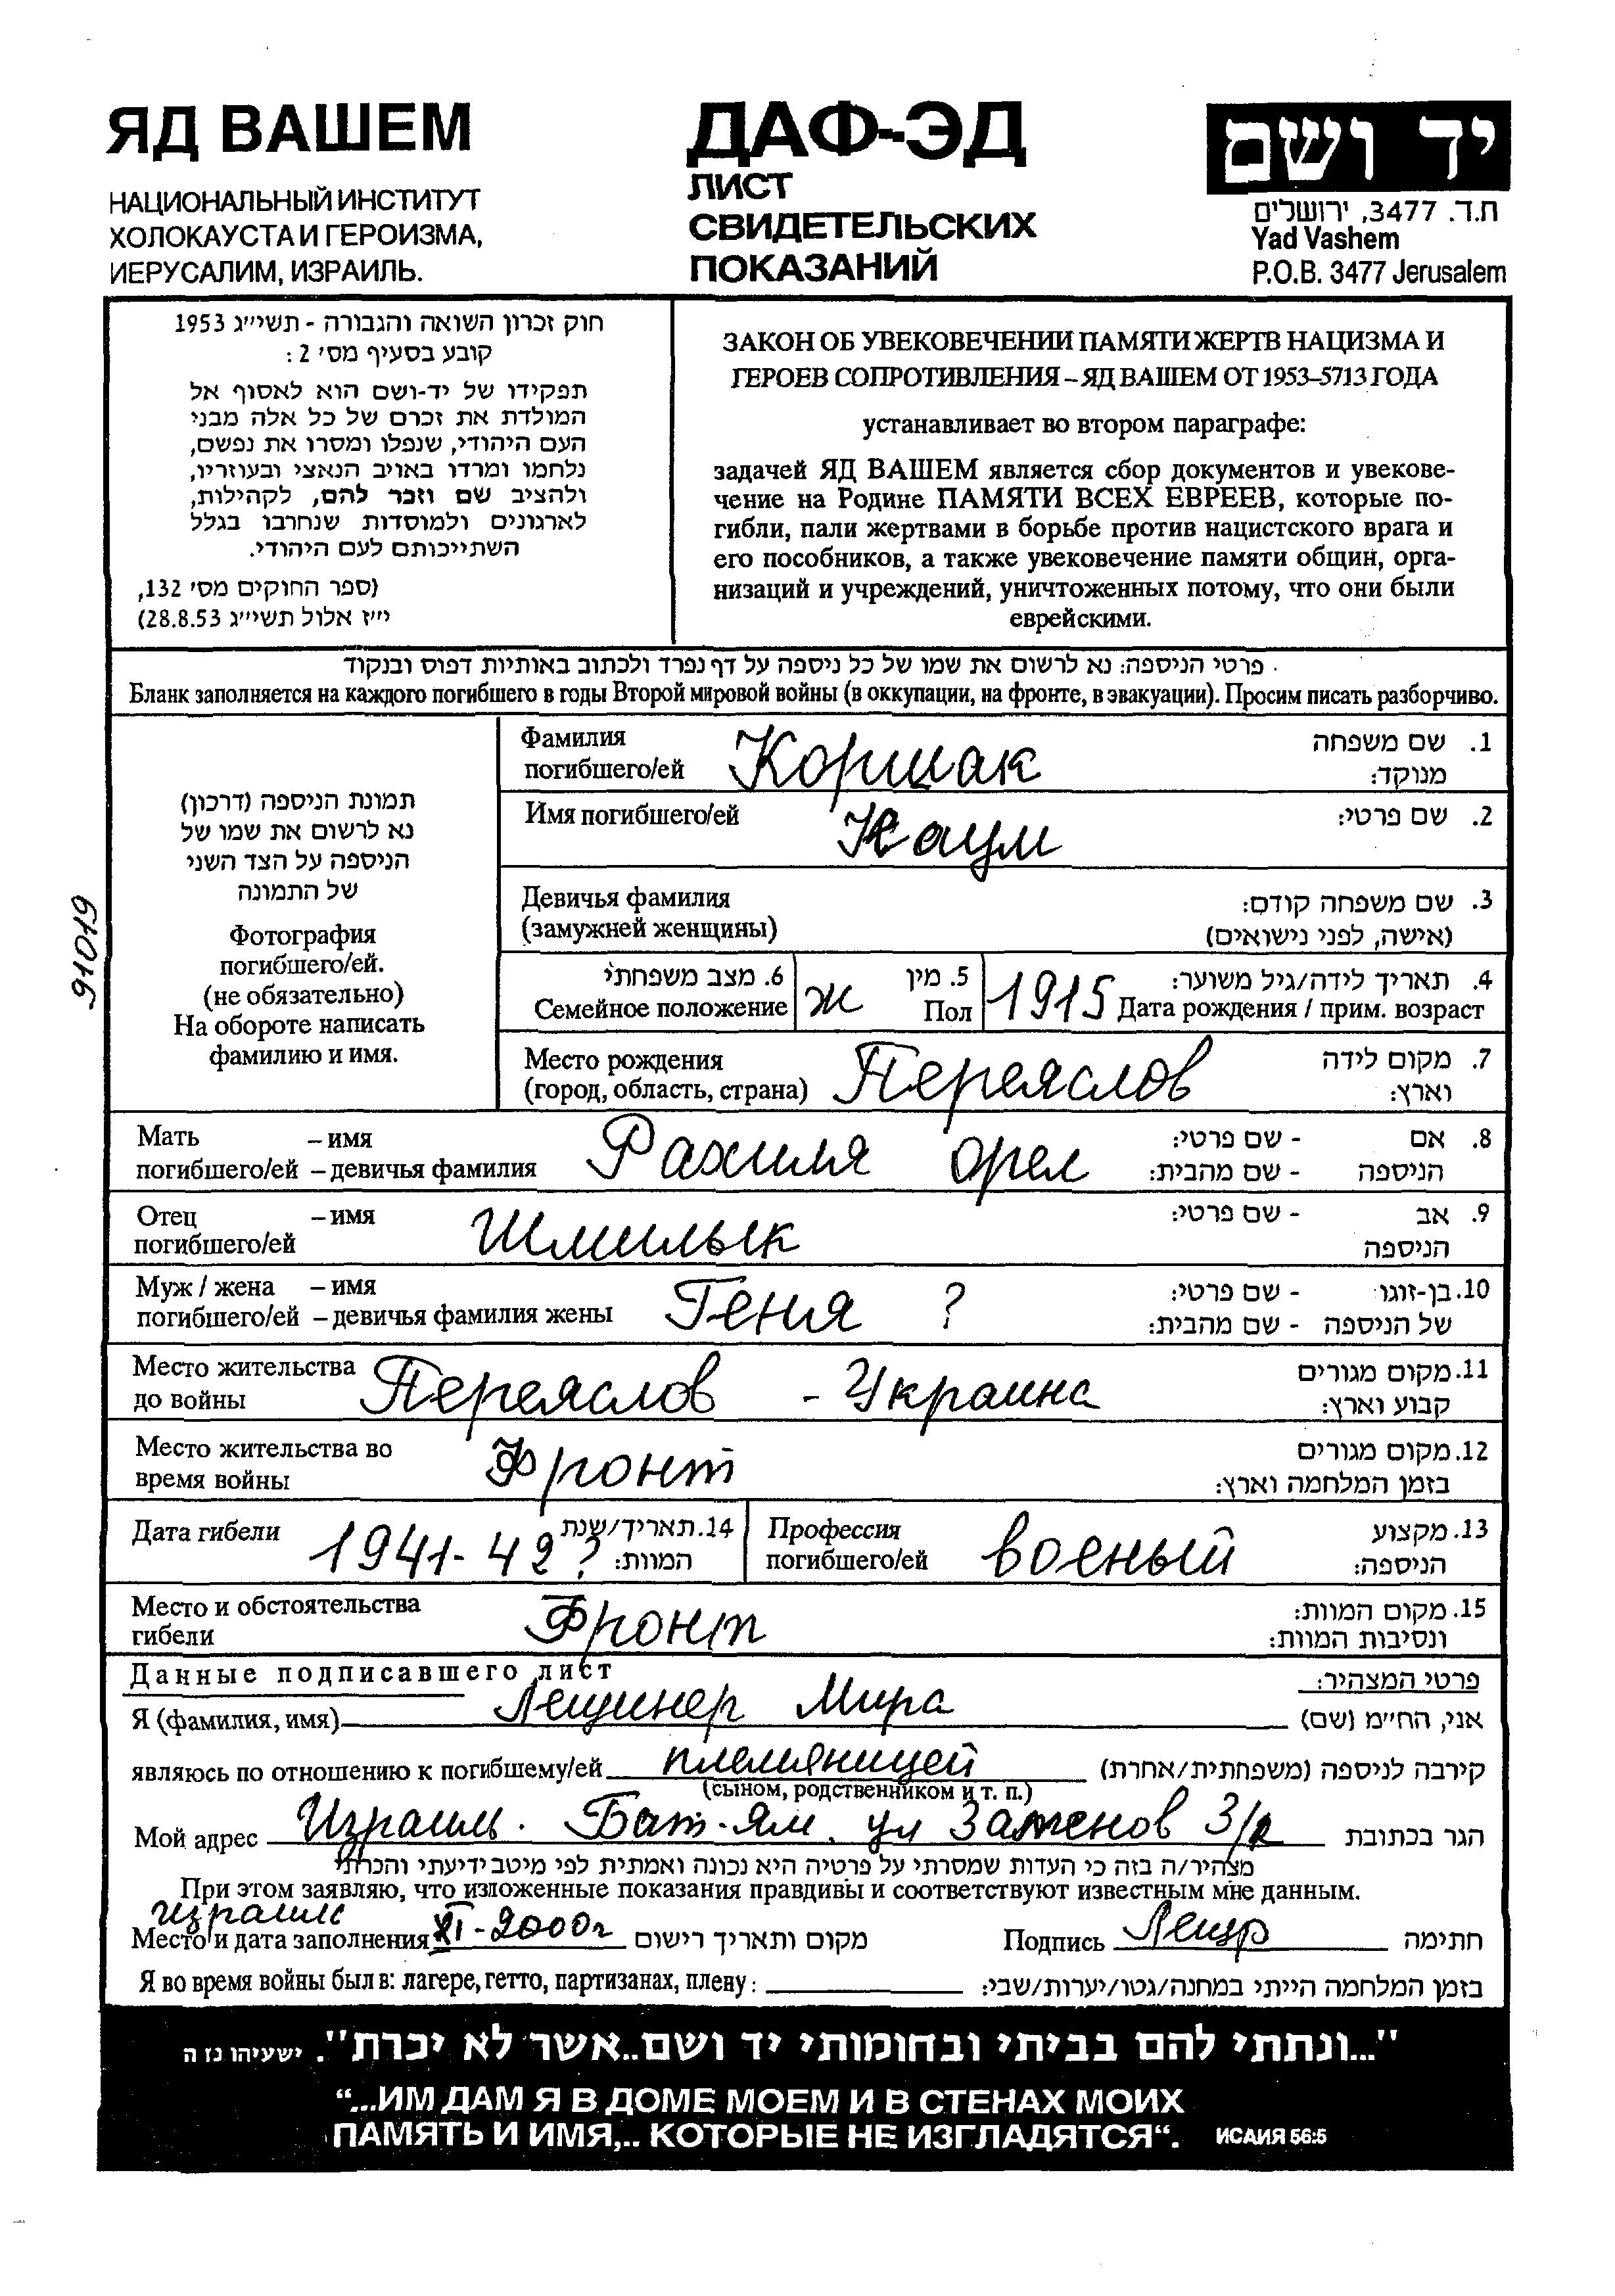 ЯД ВАШЕМ
НАЦИОНАЛЬНЫЙ ИНСТИТУТ
ХОЛОКАУСТА И ГЕРОИЗМА,
ИЕРУСАЛИМ, ИЗРАИЛЬ.
ДАФ-ЭД
ЛИСТ
СВИДЕТЕЛЬСКИХ
ПОКАЗАНИЙ
יד ושם
ת.ד. 3477, ירושלים
Yad Vashem
P.O.B. 3477 Jerusalem
חוק זכרון השואה והגבורה - תשי״ג 1953
קובע בסעיף מס׳ 2 :
תפקידו של יד-ושם הוא לאסוף אל
המולדת את זכרם של כל אלה מבני
העם היהודי, שנפלו ומסרו את נפשם,
נלחמו ומרדו באויב הנאצי ובעוזריו,
ולהציב שם וזכר להם, לקהילות,
לארגונים ולמוסדות שנחרבו בגלל
השתייכותם לעם היהודי.
(ספר החוקים מס׳ 132,
י״ז אלול תשי״ג 28.8.53)
ЗАКОН ОБ УВЕКОВЕЧЕНИИ ПАМЯТИ ЖЕРТВ НАЦИЗМА И
ГЕРОЕВ СОПРОТИВЛЕНИЯ – ЯД ВАШЕМ ОТ 1953–5713 ГОДА
устанавливает во втором параграфе:
задачей ЯД ВАШЕМ является сбор документов и увекове-
чение на Родине ПАМЯТИ ВСЕХ ЕВРЕЕВ, которые по-
гибли, пали жертвами в борьбе против нацистского врага и
его пособников, а также увековечение памяти общин, орга-
низаций и учреждений, уничтоженных потому, что они были
еврейскими.
פרטי הניספה: נא לרשום את שמו של כל ניספה על דף נפרד ולכתוב באותיות דפוס ובנקוד
Бланк заполняется на каждого погибшего в годы Второй мировой войны (в оккупации, на фронте, в эвакуации). Просим писать разборчиво.
91019
תמונת הניספה (דרכון)
נא לרשום את שמו של
הניספה על הצד השני
של התמונה
Фотография
погибшего/ей.
(не обязательно)
На обороте написать
фамилию и имя.
Фамилия погибшего/ей Коршак 1. שם משפחה מנוקד:
Имя погибшего/ей Наум 2. שם פרטי:
Девичья фамилия (замужней женщины) 3. שם משפחה קודם: (אישה, לפני נישואים)
6. מצב משפחתי Семейное положение ж 5. מין Пол 1915 4. תאריך לידה/גיל משוער: Дата рождения / прим. возраст
Место рождения (город, область, страна) Переяслов 7. מקום לידה וארץ:
Мать – имя 8. אם - שם פרטי:
погибшего/ей – девичья фамилия Рахиля Орел הניספה - שם מהבית:
Отец – имя 9. אב - שם פרטי:
погибшего/ей Шмилык הניספה
Муж / жена – имя 10. בן-זוגו - שם פרטי:
погибшего/ей – девичья фамилия жены Геня ? של הניספה - שם מהבית:
Место жительства до войны Переяслов - Украина 11. מקום מגורים קבוע וארץ:
Место жительства во время войны Фронт 12. מקום מגורים בזמן המלחמה וארץ:
Дата гибели 1941-42 ? 14. תאריך/שנת המוות: Профессия погибшего/ей военый 13. מקצוע הניספה:
Место и обстоятельства гибели Фронт 15. מקום המוות: ונסיבות המוות:
Данные подписавшего лист פרטי המצהיר:
Я (фамилия, имя) Лещинер Мира אני, החי״מ (שם)
являюсь по отношению к погибшему/ей племяницей קירבה לניספה (משפחתית/אחרת)
(сыном, родственником и т. п.)
Мой адрес Израиль. Бат-Ям. ул הגר בכתובת
מצהיר/ה בזה כי העדות שמסרתי על פרטיה היא נכונה ואמתית לפי מיטב ידיעתי והכרתי
При этом заявляю, что изложенные показания правдивы и соответствуют известным мне данным.
Израиль
Место и дата заполнения XI-2000г מקום ותאריך רישום Подпись Лещр חתימה
Я во время войны был в: лагере, гетто, партизанах, плену: בזמן המלחמה הייתי במחנה/גטו/יערות/שבי:
"...ונתתי להם בביתי ובחומותי יד ושם..אשר לא יכרת". ישעיהו נז ה
“...ИМ ДАМ Я В ДОМЕ МОЕМ И В СТЕНАХ МОИХ
ПАМЯТЬ И ИМЯ,.. КОТОРЫЕ НЕ ИЗГЛАДЯТСЯ“. ИСАИЯ 56:5